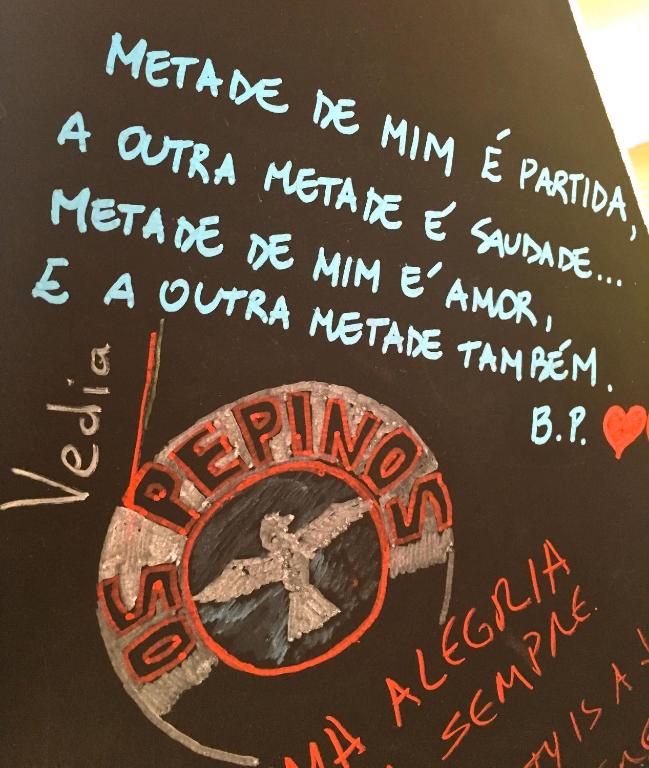 METADE DE MIM É PARTIDA,
A OUTRA METADE É SAUDADE...
METADE DE MIM É AMOR,
E A OUTRA METADE TAMBÉM.
B.P.
Vedia
OS PEPINOS
ALEGRIA
SEMPRE.
IS A